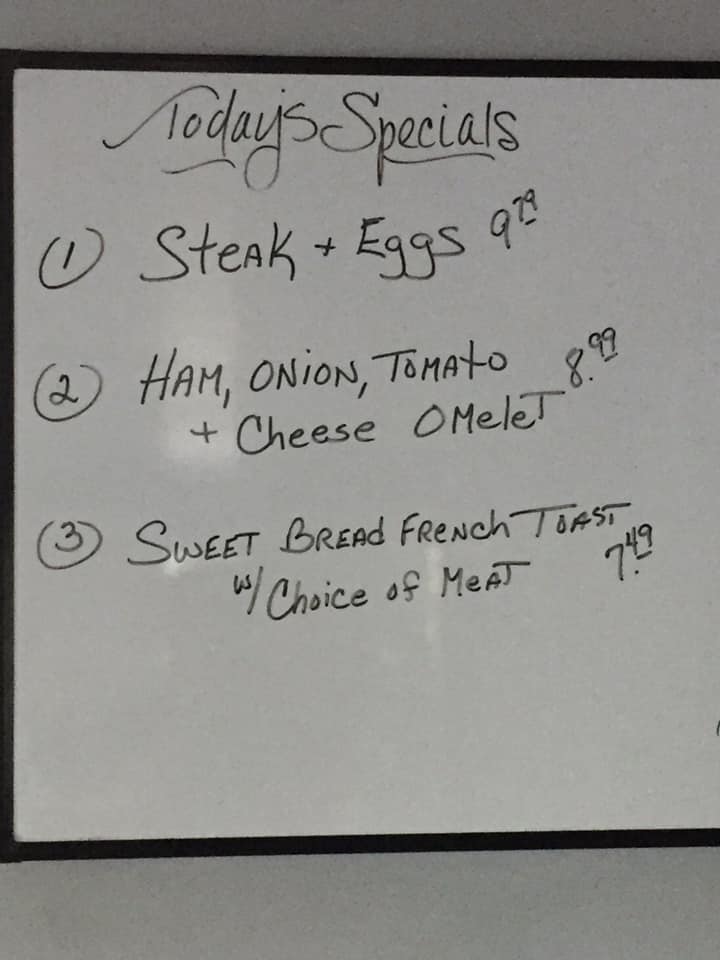 Today's Specials
① Steak + Eggs 9.79
② HAM, ONION, TOMATO 8.99
+ Cheese OMeleT
③ SWEET BREAd FRENCh TOAST
w/ Choice of MeAT 7.49